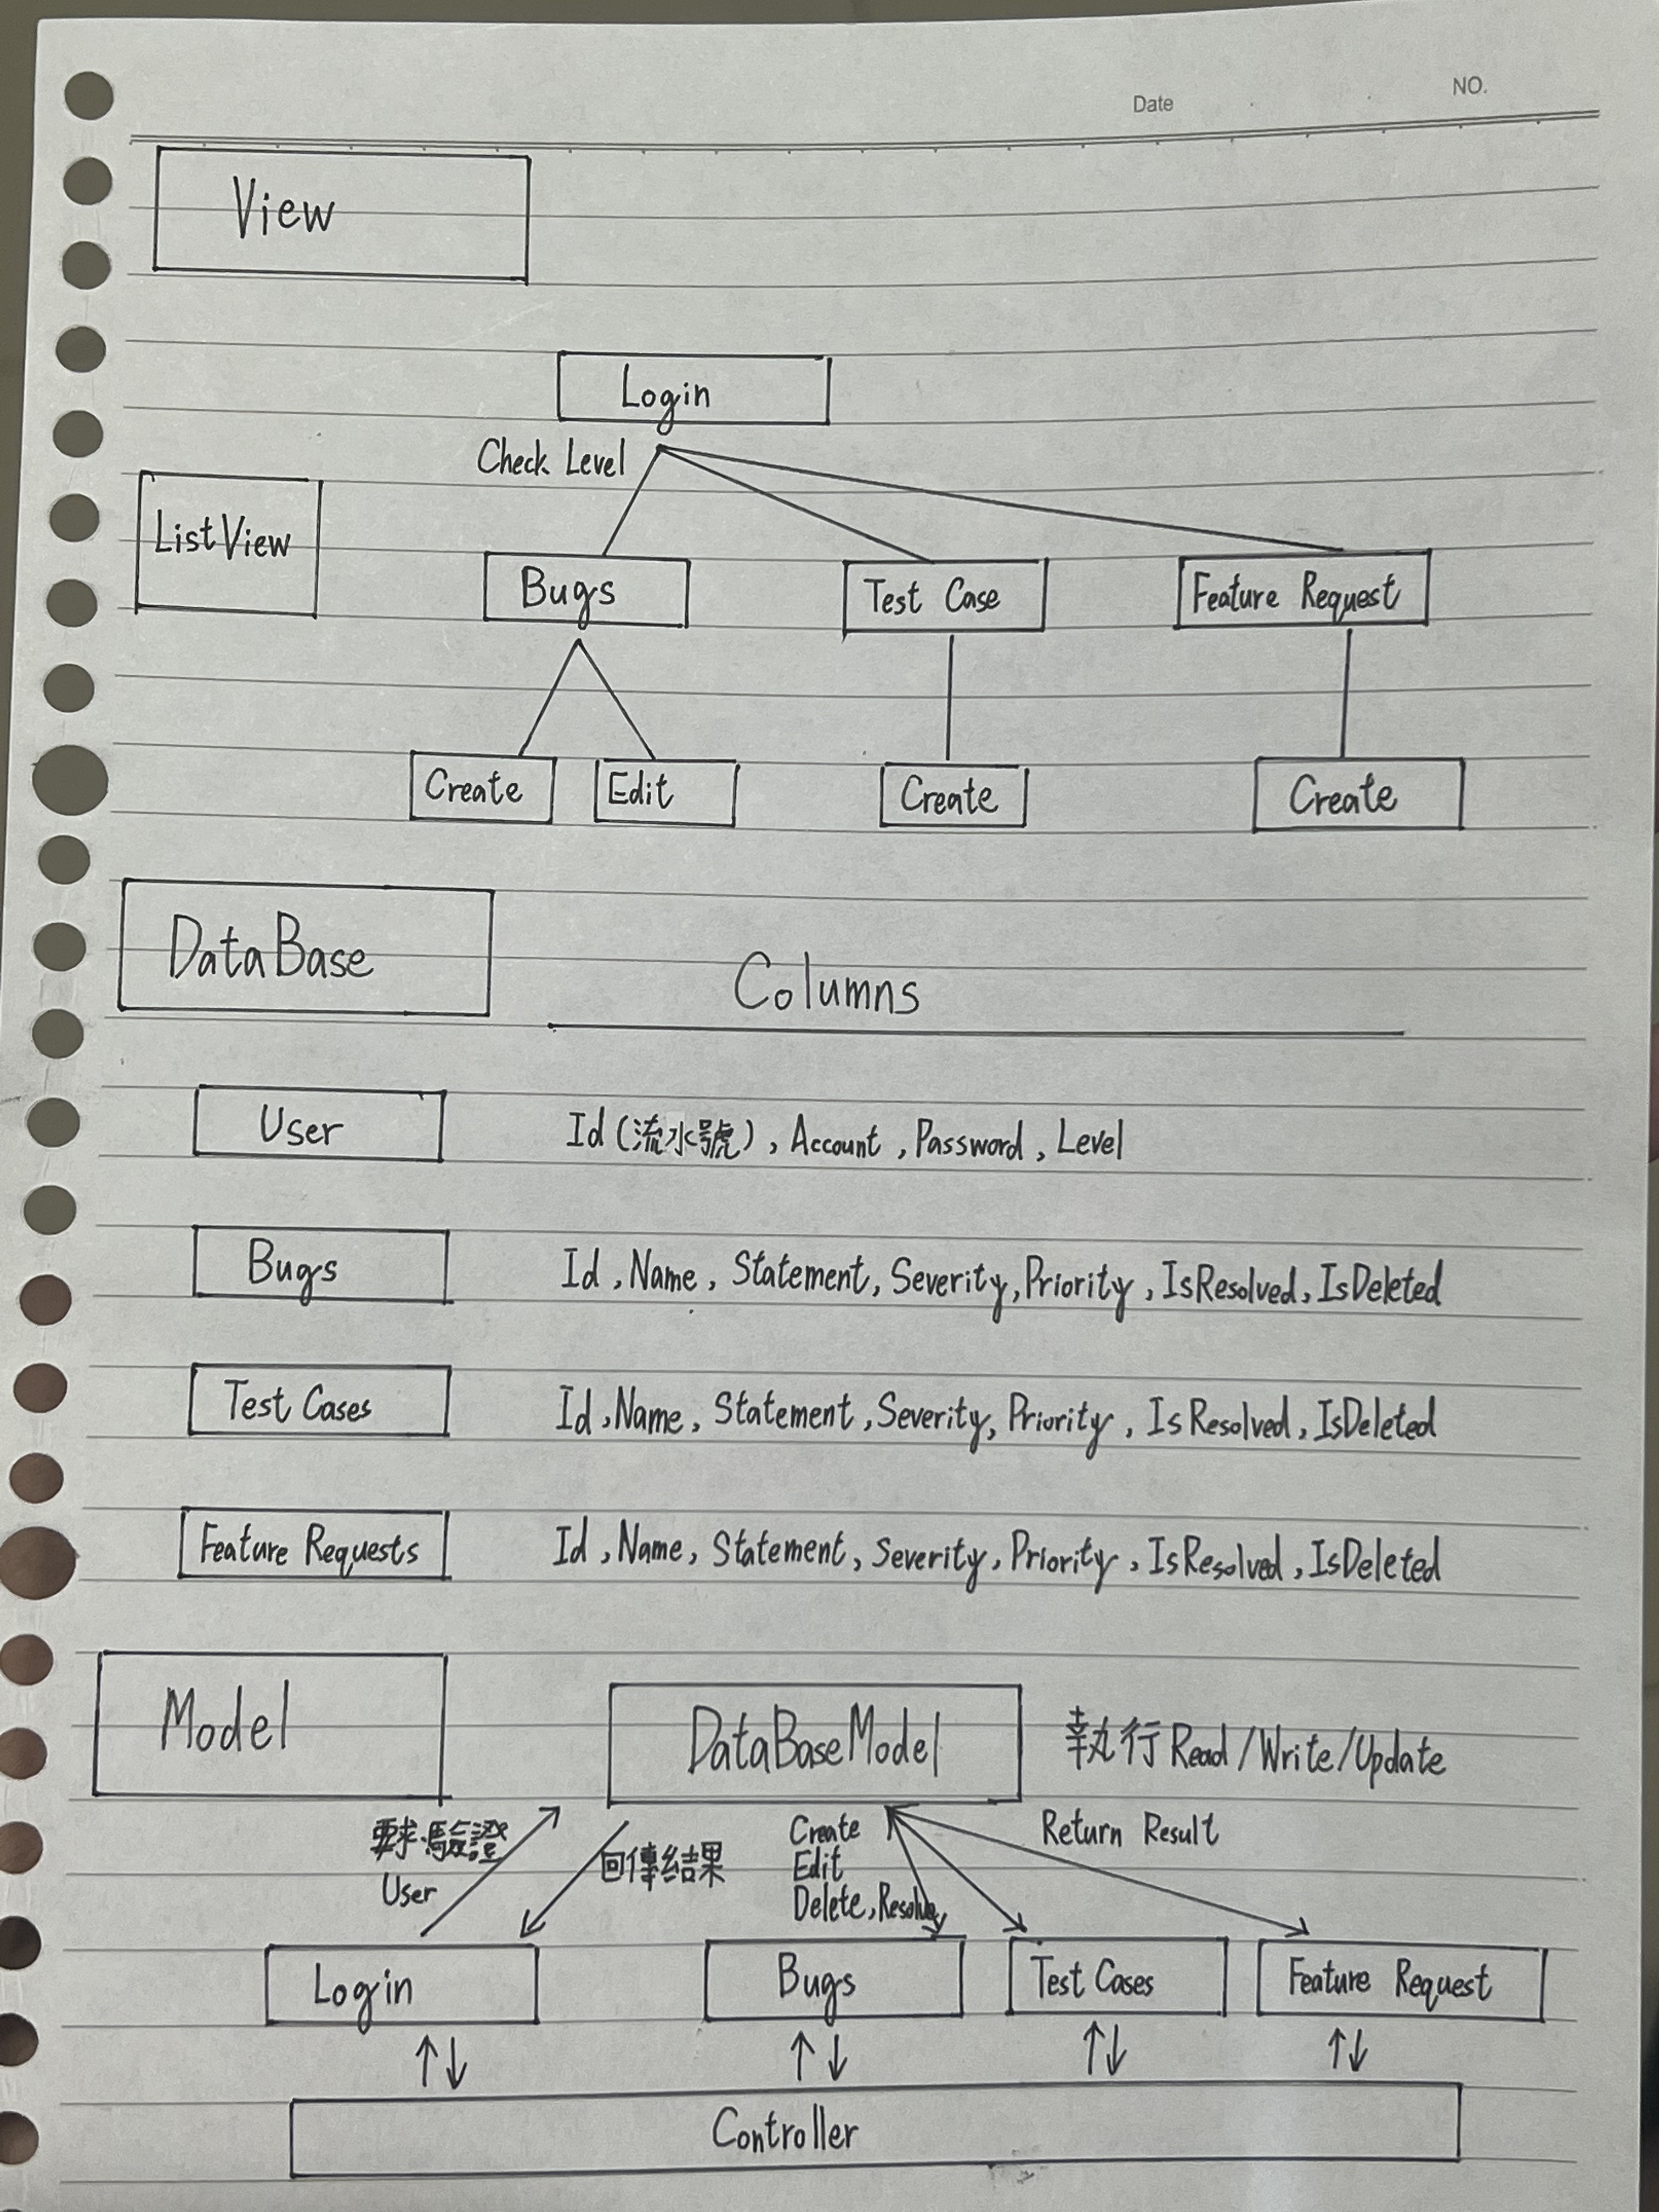 Date NO.
View
Login
Check Level
ListView
Bugs Test Case Feature Request
Create Edit Create Create
DataBase
Columns
User Id(流水號), Account, Password, Level
Bugs Id, Name, Statement, Severity, Priority, IsResolved, IsDeleted
Test Cases Id, Name, Statement, Severity, Priority, IsResolved, IsDeleted
Feature Requests Id, Name, Statement, Severity, Priority, IsResolved, IsDeleted
Model
DataBaseModel 執行 Read/Write/Update
要求驗證
User
回傳结果
Create
Edit
Delete, Resolve
Return Result
Login Bugs Test Cases Feature Request
Controller